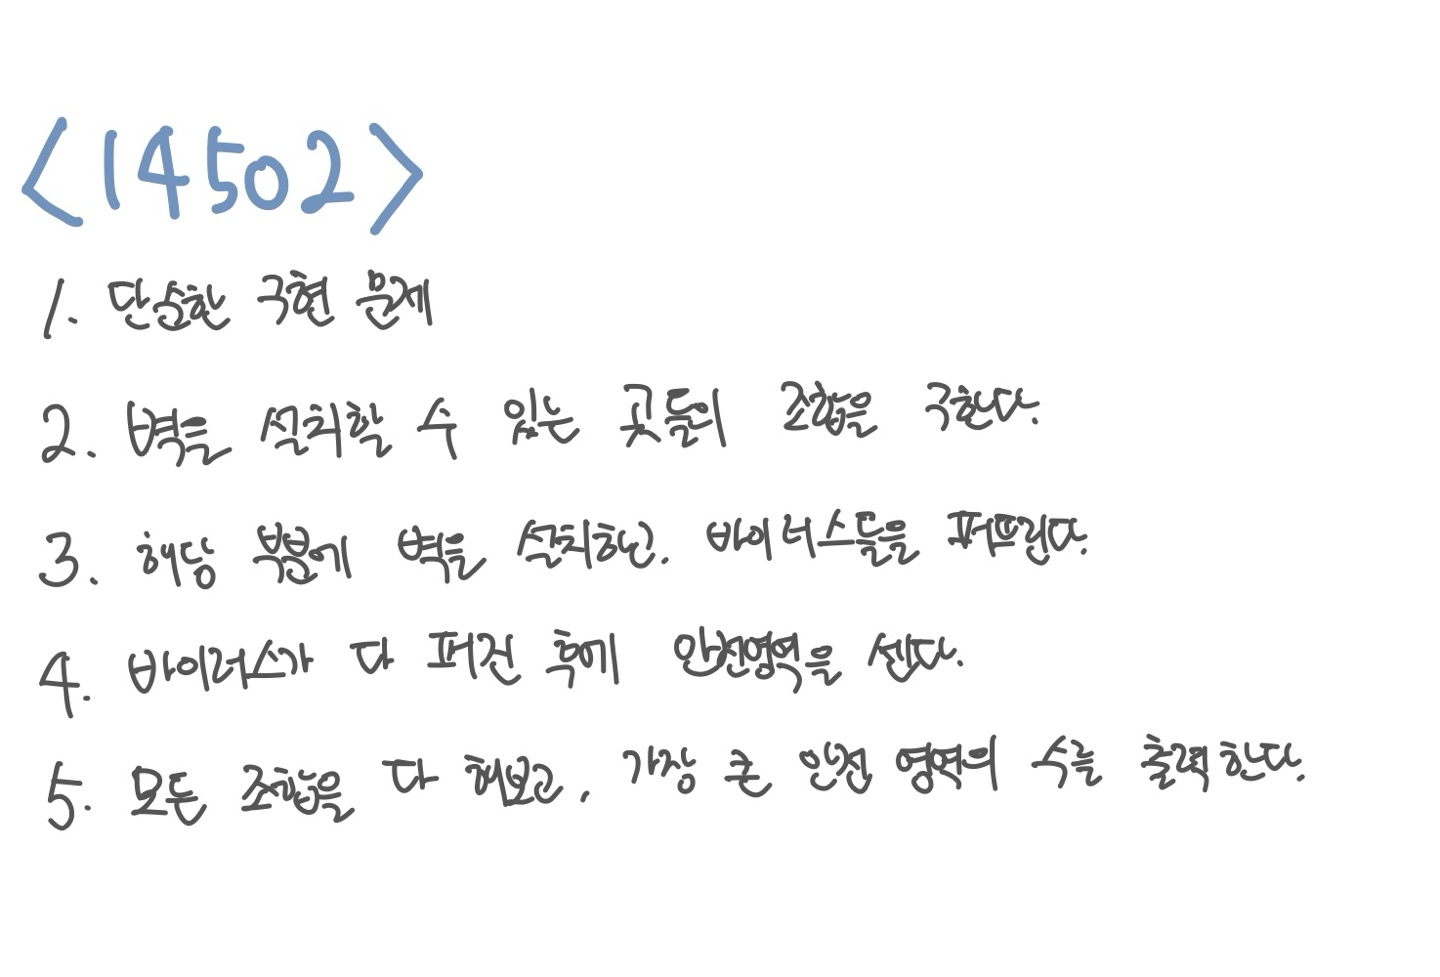 <14502>
1. 단순한 구현 문제
2. 벽을 설치할 수 있는 곳들의 조합을 구한다.
3. 해당 부분에 벽을 설치하고, 바이러스들을 퍼뜨린다.
4. 바이러스가 다 퍼진 후에 안전영역을 센다.
5. 모든 조합을 다 해보고, 가장 큰 안전 영역의 수를 출력한다.